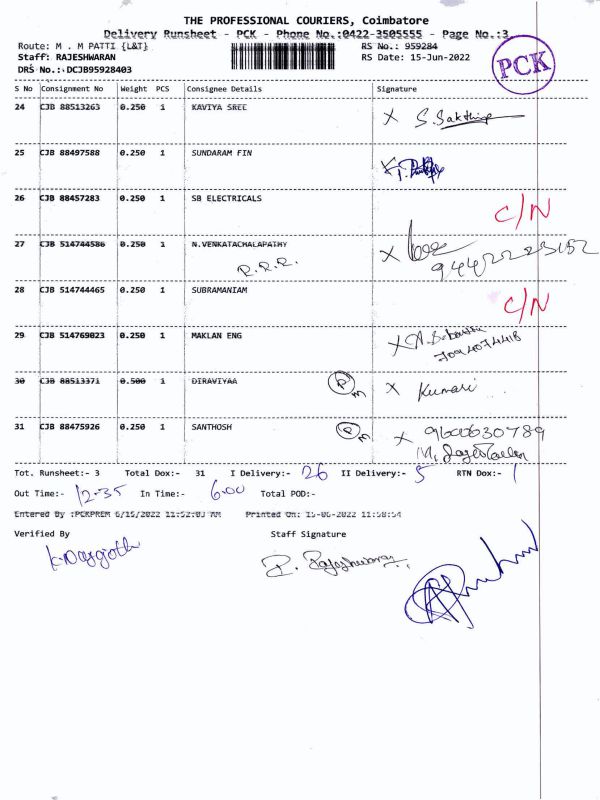 THE PROFESSIONAL COURIERS, Coimbatore
Delivery Runsheet - PCK - Phone No.:0422-3505555 - Page No.:3
Route: M . M PATTI {L&T} RS No.: 959284
Staff: RAJESHWARAN RS Date: 15-Jun-2022
DRS No.: DCJB95928403
PCK
S No Consignment No Weight PCS Consignee Details Signature
24 CJB 88513263 0.250 1 KAVIYA SREE X S. Sakthi
25 CJB 88497588 0.250 1 SUNDARAM FIN
26 CJB 88457283 0.250 1 SB ELECTRICALS C/N
27 CJB 514744586 0.250 1 N.VENKATACHALAPATHY X
R.R.R.
28 CJB 514744465 0.250 1 SUBRAMANIAM C/N
29 CJB 514769023 0.250 1 MAKLAN ENG X
7094074418
30 CJB 88513371 0.500 1 DIRAVIYAA P M X Kumari
31 CJB 88475926 0.250 1 SANTHOSH P M X 9600630789
Tot. Runsheet:- 3 Total Dox:- 31 I Delivery:- 26 II Delivery:- 5 RTN Dox:-
Out Time:- 12-35 In Time:- 6.00 Total POD:-
Entered By :PCKPREM 6/15/2022 Printed On: 15-06-2022 11:58:54
Verified By Staff Signature